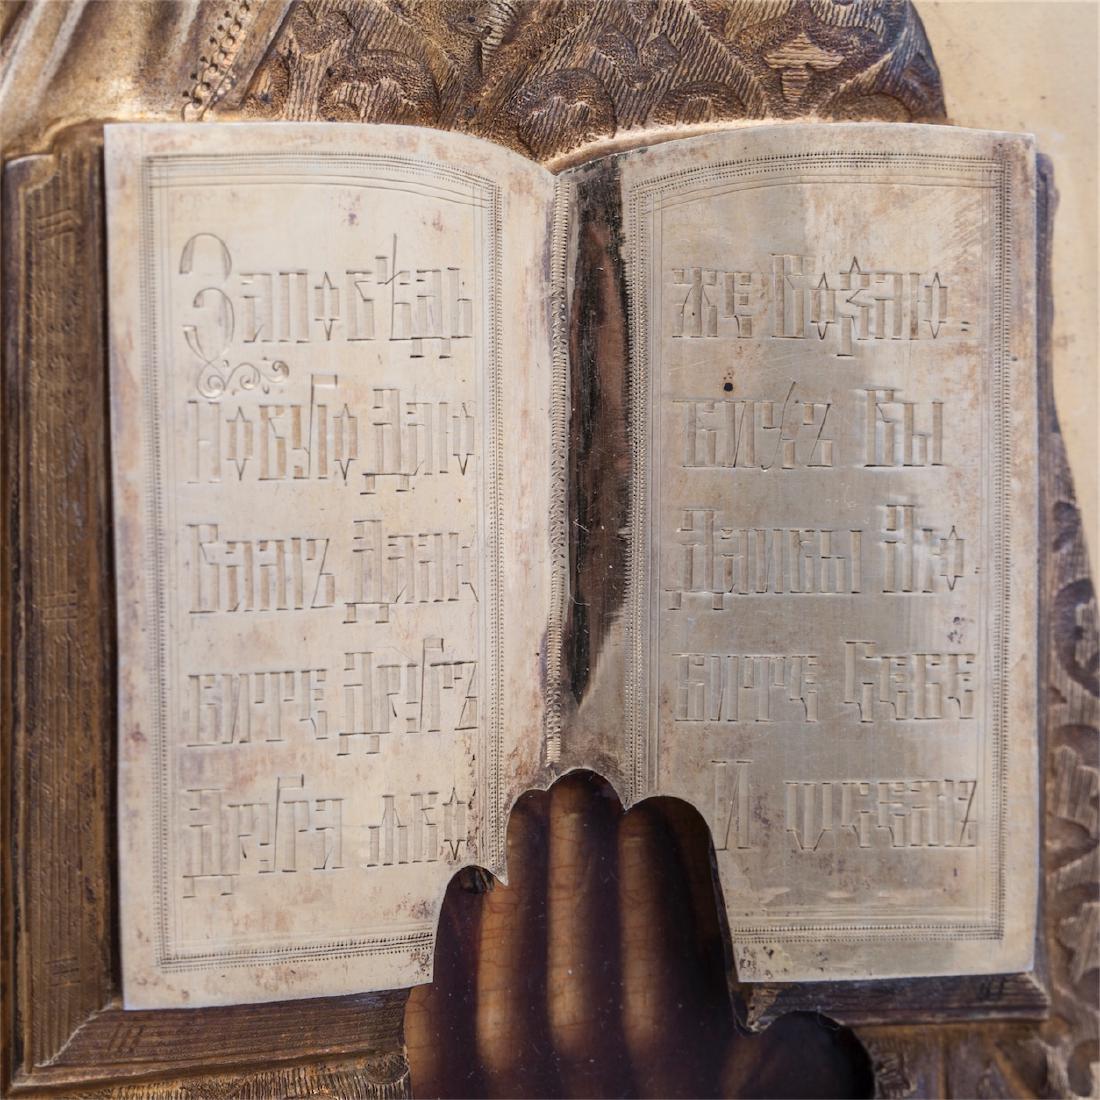 Заповѣдь
новую Даю
Вамъ Да лю
бите Другъ
Друга яко
же Возлю.
бихъ Вы
Да и вы Лю
бите Себе
И ѡ семъ